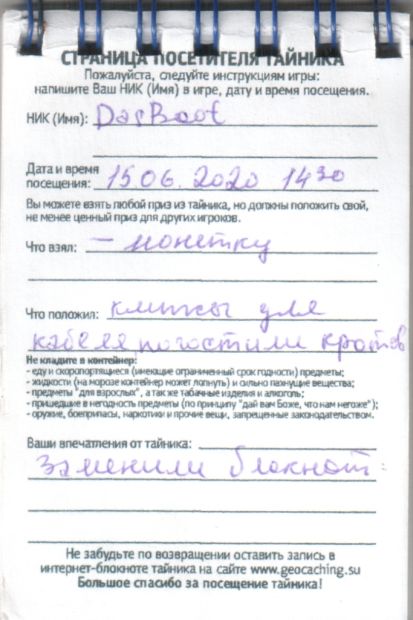 СТРАНИЦА ПОСЕТИТЕЛЯ ТАЙНИКА
Пожалуйста, следуйте инструкциям игры:
напишите Ваш НИК (Имя) в игре, дату и время посещения.
НИК (Имя): DasBoot
Дата и время
посещения: 15.06.2020 14 30
Вы можете взять любой приз из тайника, но должны положить свой,
не менее ценный приз для других игроков.
Что взял: – монетку
Что положил: клипсы для
кабеля
Не кладите в контейнер:
- еду и скоропортящиеся (имеющие ограниченный срок годности) предметы;
- жидкости (на морозе контейнер может лопнуть) и сильно пахнущие вещества;
- предметы "для взрослых", а так же табачные изделия и алкоголь;
- пришедшие в негодность предметы (по принципу "дай вам Боже, что нам негоже");
- оружие, боеприпасы, наркотики и прочие вещи, запрещенные законодательством.
Ваши впечатления от тайника:
Заменили блокнот.
Не забудьте по возвращении оставить запись в
интернет-блокноте тайника на сайте www.geocaching.su
Большое спасибо за посещение тайника!